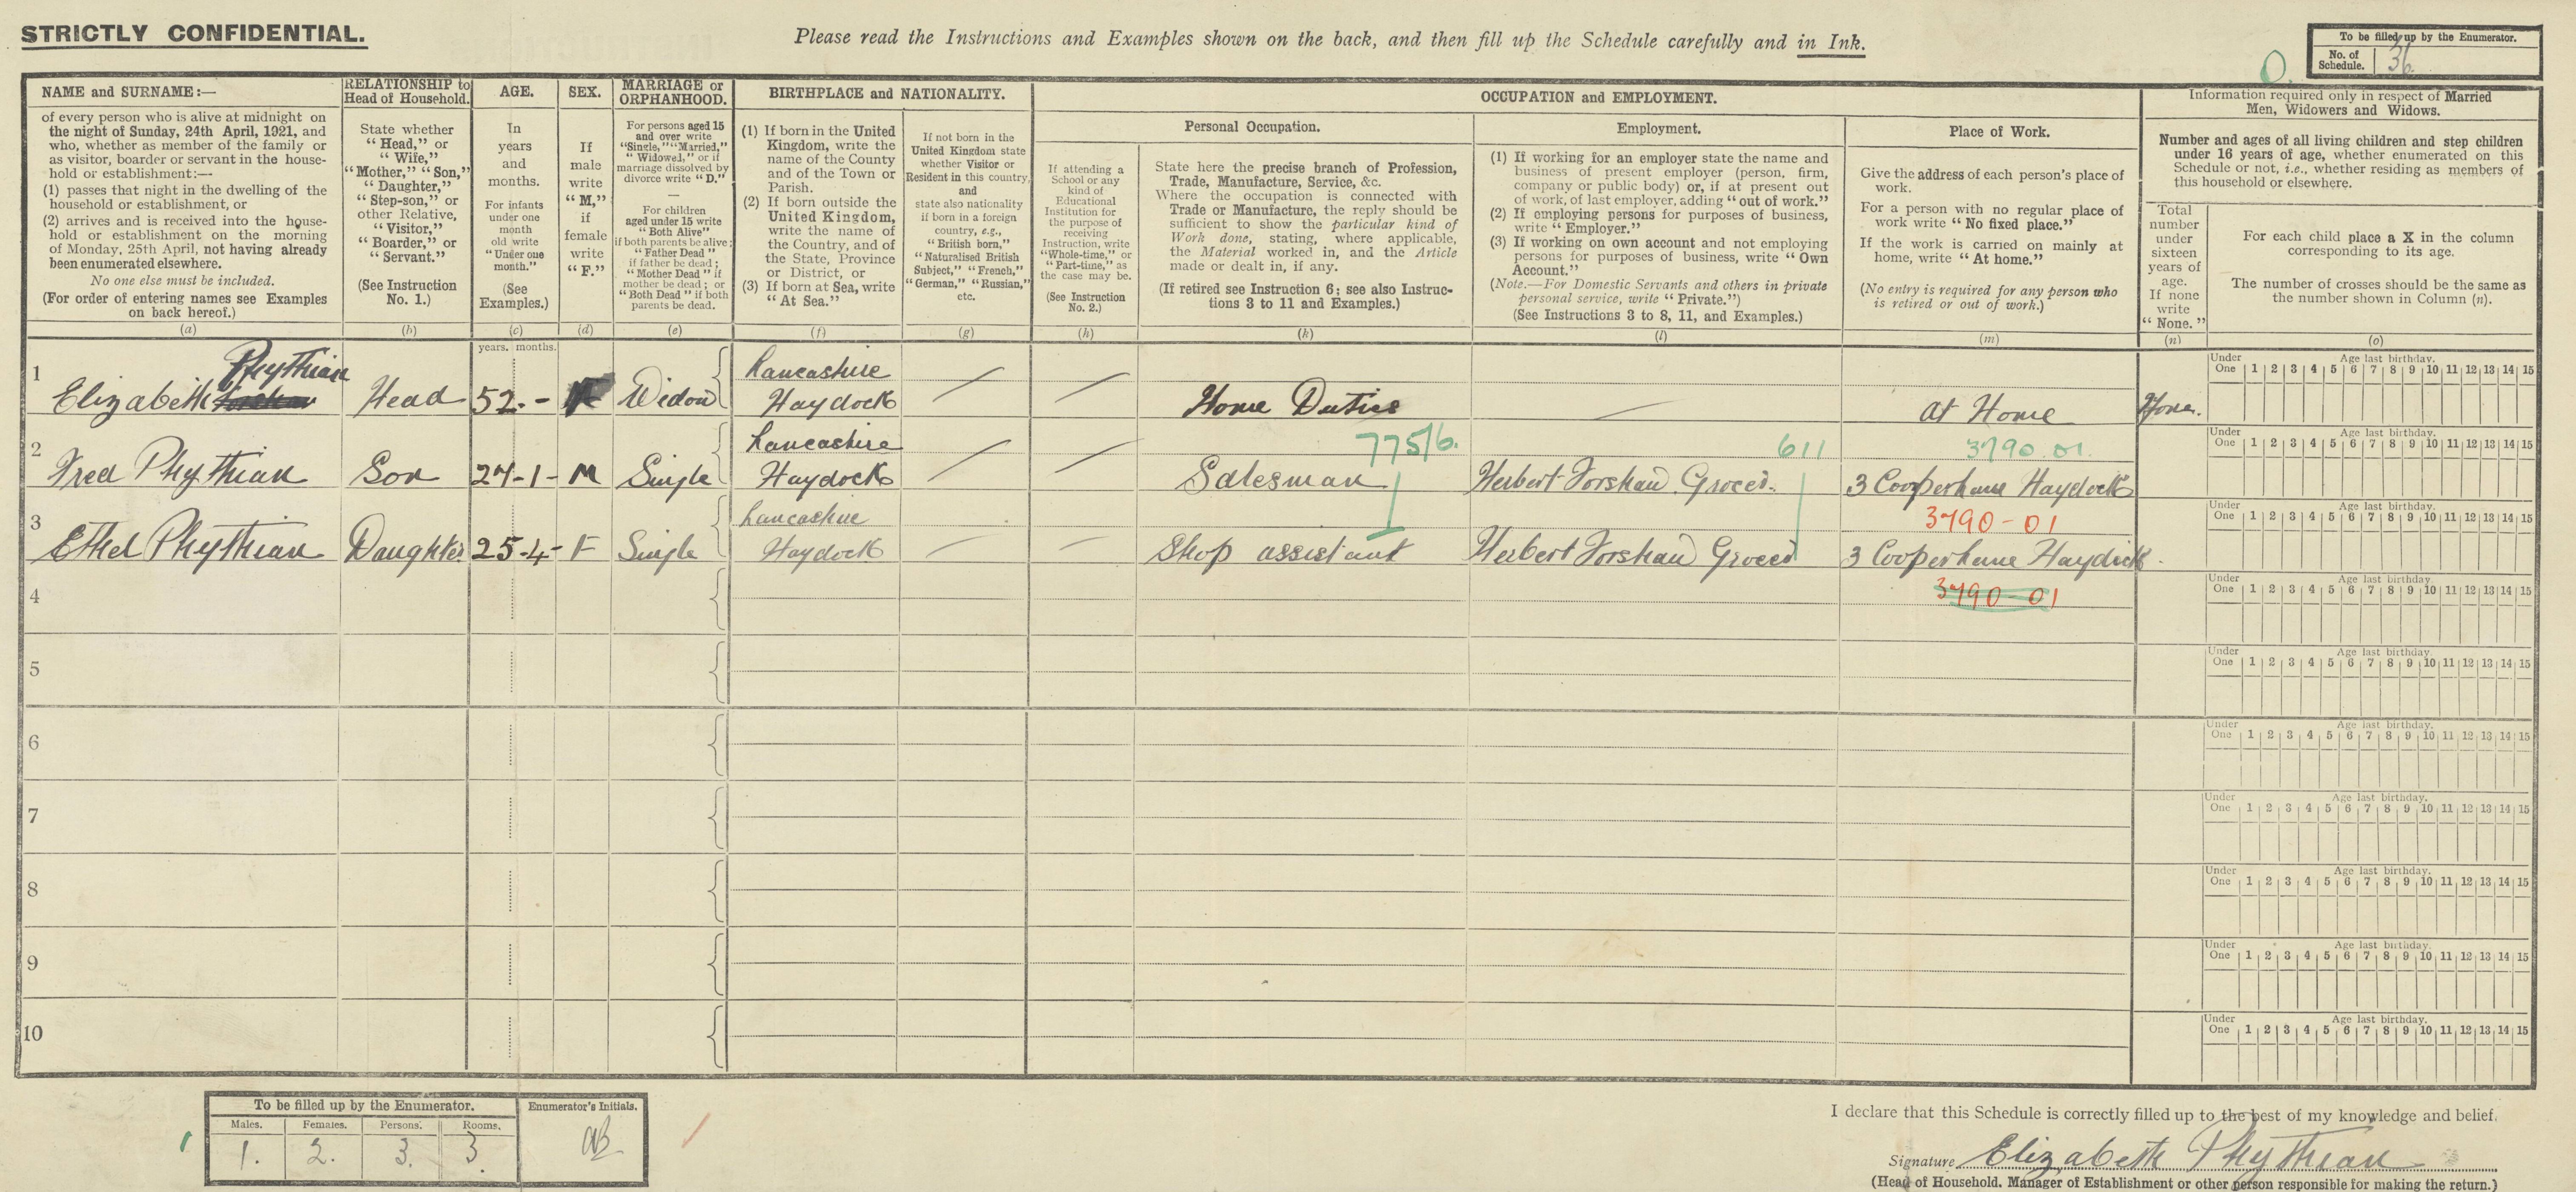 STRICTLY CONFIDENTIAL.
Please read the Instructions and Examples shown on the back, and then fill up the Schedule carefully and in Ink.
To be filled up by the Enumerator.
No. of Schedule. 36
O.
NAME and SURNAME:—
of every person who is alive at midnight on
the night of Sunday, 24th April, 1921, and
who, whether as member of the family or
as visitor, boarder or servant in the house-
hold or establishment:—
(1) passes that night in the dwelling of the
household or establishment, or
(2) arrives and is received into the house-
hold or establishment on the morning
of Monday, 25th April, not having already
been enumerated elsewhere.
No one else must be included.
(For order of entering names see Examples
on back hereof.)
(a)
RELATIONSHIP to
Head of Household.
State whether
"Head," or
"Wife,"
"Mother," "Son,"
"Daughter,"
"Step-son," or
other Relative,
"Visitor,"
"Boarder," or
"Servant."
(See Instruction
No. 1.)
(b)
AGE.
In
years
and
months.
For infants
under one
month
old write
"Under one
month."
(See
Examples.)
(c)
SEX.
If
male
write
"M,"
if
female
write
"F."
(d)
MARRIAGE or
ORPHANHOOD.
For persons aged 15
and over write
"Single," "Married,"
"Widowed," or if
marriage dissolved by
divorce write "D."
—
For children
aged under 15 write
"Both Alive"
if both parents be alive;
"Father Dead"
if father be dead;
"Mother Dead" if
mother be dead; or
"Both Dead" if both
parents be dead.
(e)
BIRTHPLACE and NATIONALITY.
(1) If born in the United
Kingdom, write the
name of the County
and of the Town or
Parish.
(2) If born outside the
United Kingdom,
write the name of
the Country, and of
the State, Province
or District, or
(3) If born at Sea, write
"At Sea."
(f)
If not born in the
United Kingdom state
whether Visitor or
Resident in this country,
and
state also nationality
if born in a foreign
country, e.g.,
"British born,"
"Naturalised British
Subject," "French,"
"German," "Russian,"
etc.
(g)
OCCUPATION and EMPLOYMENT.
If attending a
School or any
kind of
Educational
Institution for
the purpose of
receiving
Instruction, write
"Whole-time," or
"Part-time," as
the case may be.
(See Instruction
No. 2.)
(h)
Personal Occupation.
State here the precise branch of Profession,
Trade, Manufacture, Service, &c.
Where the occupation is connected with
Trade or Manufacture, the reply should be
sufficient to show the particular kind of
Work done, stating, where applicable,
the Material worked in, and the Article
made or dealt in, if any.
(If retired see Instruction 6; see also Instruc-
tions 3 to 11 and Examples.)
(k)
Employment.
(1) If working for an employer state the name and
business of present employer (person, firm,
company or public body) or, if at present out
of work, of last employer, adding "out of work."
(2) If employing persons for purposes of business,
write "Employer."
(3) If working on own account and not employing
persons for purposes of business, write "Own
Account."
(Note.—For Domestic Servants and others in private
personal service, write "Private.")
(See Instructions 3 to 8, 11, and Examples.)
(l)
Place of Work.
Give the address of each person's place of
work.
For a person with no regular place of
work write "No fixed place."
If the work is carried on mainly at
home, write "At home."
(No entry is required for any person who
is retired or out of work.)
(m)
Information required only in respect of Married
Men, Widowers and Widows.
Number and ages of all living children and step children
under 16 years of age, whether enumerated on this
Schedule or not, i.e., whether residing as members of
this household or elsewhere.
Total
number
under
sixteen
years of
age.
If none
write
"None."
(n)
For each child place a X in the column
corresponding to its age.
The number of crosses should be the same as
the number shown in Column (n).
(o)
years. months.
1 Elizabeth Phythian Head 52 - F Widow Lancashire Haydock Home Duties At Home None.
Under One Age last birthday. 1 2 3 4 5 6 7 8 9 10 11 12 13 14 15
2 Fred Phythian Son 27-1- M Single Lancashire Haydock Salesman 775/6. Herbert Forshaw Grocer. 611 3790.01. 3 Cooper Lane Haydock
Under One Age last birthday. 1 2 3 4 5 6 7 8 9 10 11 12 13 14 15
3 Ethel Phythian Daughter 25-4- F Single Lancashire Haydock Shop assistant Herbert Forshaw Grocer 3790-01 3 Cooper Lane Haydock
Under One Age last birthday. 1 2 3 4 5 6 7 8 9 10 11 12 13 14 15
4 3790-01
Under One Age last birthday. 1 2 3 4 5 6 7 8 9 10 11 12 13 14 15
5
Under One Age last birthday. 1 2 3 4 5 6 7 8 9 10 11 12 13 14 15
6
Under One Age last birthday. 1 2 3 4 5 6 7 8 9 10 11 12 13 14 15
7
Under One Age last birthday. 1 2 3 4 5 6 7 8 9 10 11 12 13 14 15
8
Under One Age last birthday. 1 2 3 4 5 6 7 8 9 10 11 12 13 14 15
9
Under One Age last birthday. 1 2 3 4 5 6 7 8 9 10 11 12 13 14 15
10
Under One Age last birthday. 1 2 3 4 5 6 7 8 9 10 11 12 13 14 15
To be filled up by the Enumerator.
Males. Females. Persons. Rooms.
1. 2. 3. 3.
Enumerator's Initials.
I declare that this Schedule is correctly filled up to the best of my knowledge and belief.
Signature Elizabeth Phythian
(Head of Household, Manager of Establishment or other person responsible for making the return.)